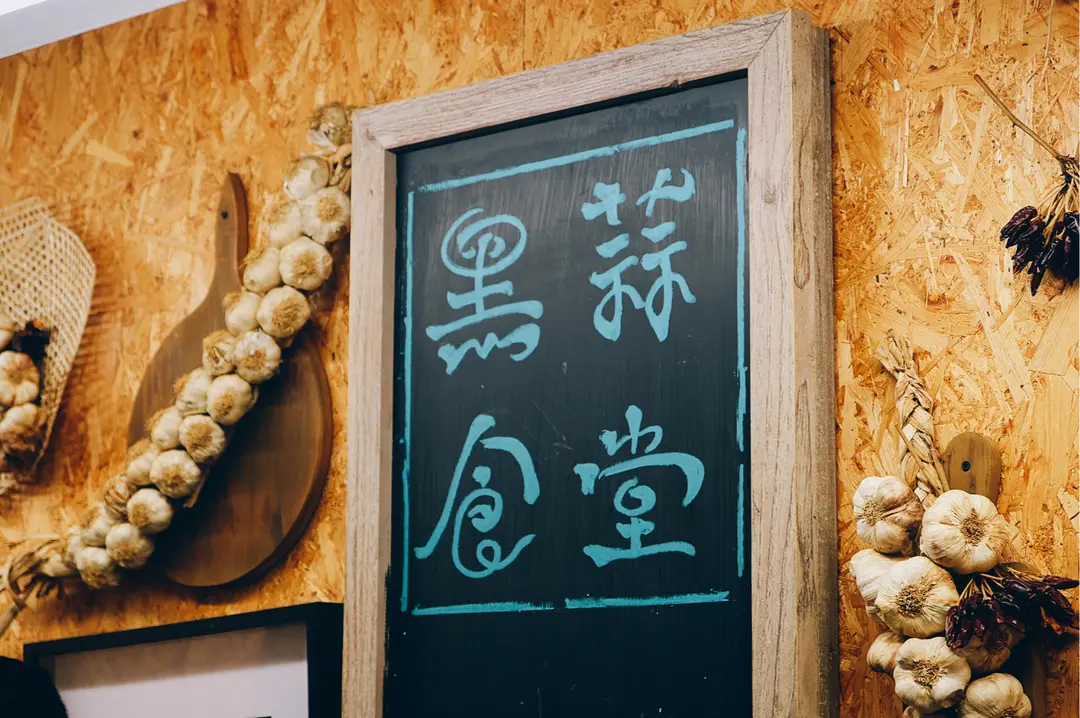 黑蒜
食堂